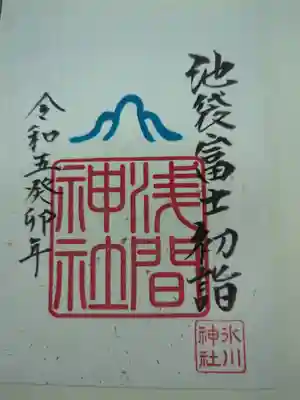 池袋富士初詣
浅間
神社
氷川
神社
令和五癸卯年